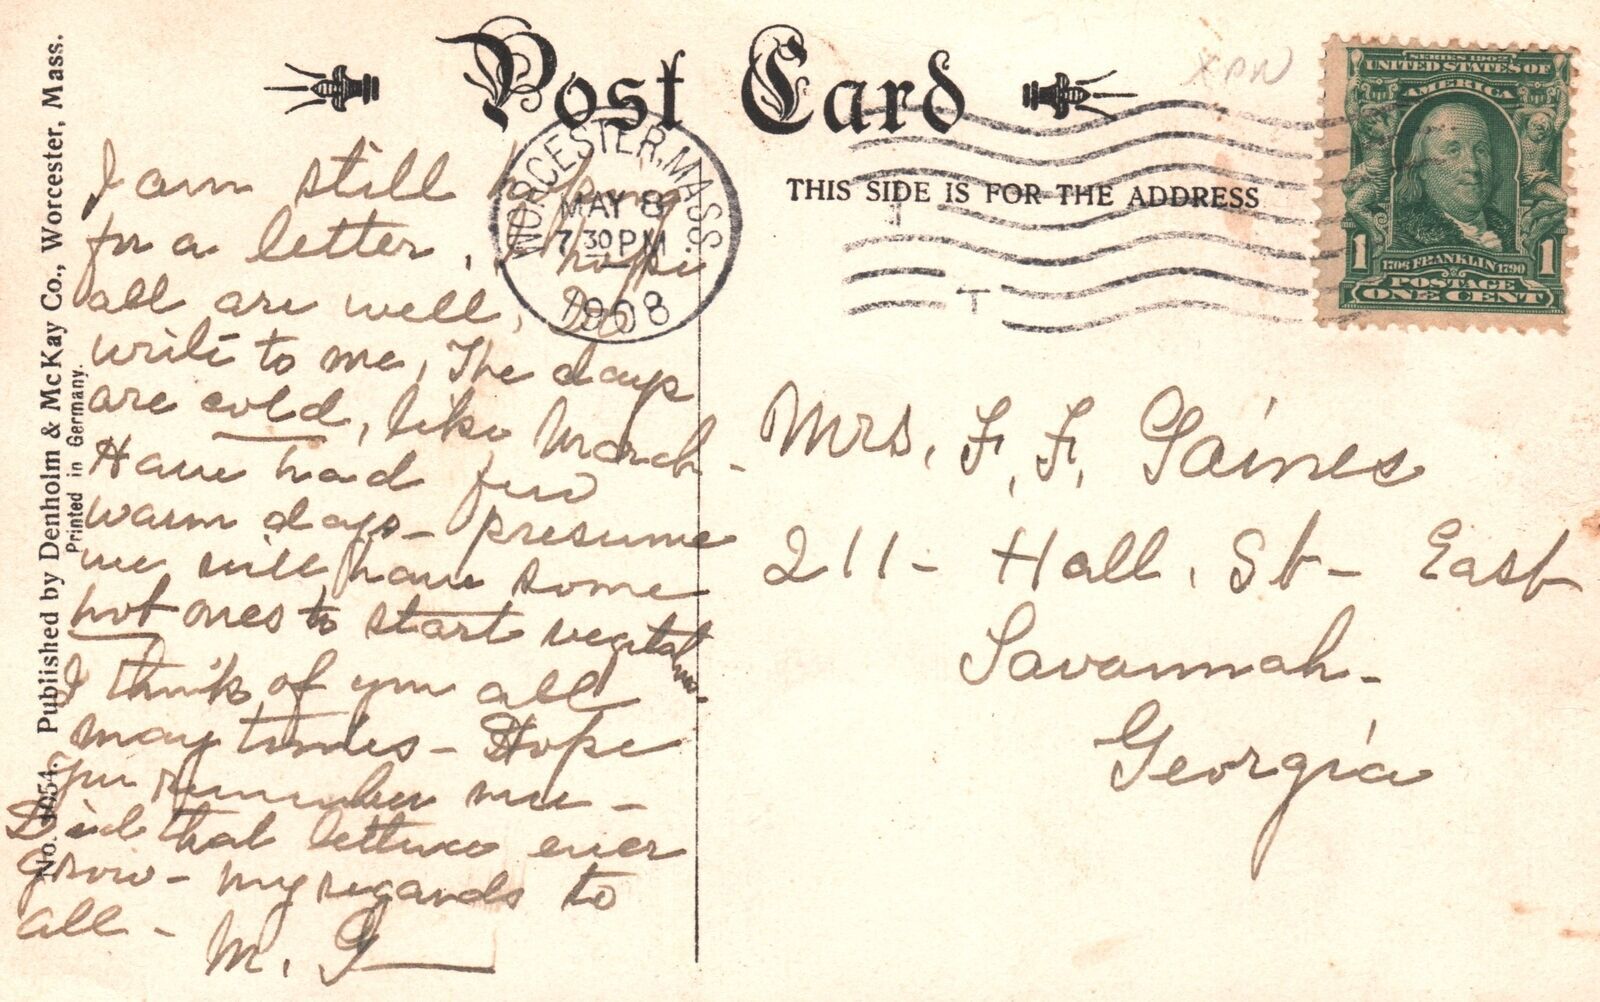 Post Card
XPW
THIS SIDE IS FOR THE ADDRESS
WORCESTER, MASS.
MAY 8
7 30 PM
1908
T
SERIES 1902
UNITED STATES OF
AMERICA
1706 FRANKLIN 1790
1 1
POSTAGE
ONE CENT
No. 1054. Published by Denholm & McKay Co., Worcester, Mass.
Printed in Germany.
I am still hoping
for a letter, I hope
all are well, Do
write to me, The days
are cold, like March -
Have had few
warm days - presume
we will have some
hot ones to start vegitables.
I think of you all
many times - Hope
you remember me -
Did that lettuce ever
grow - my regards to
all -
M. G
Mrs. F. F. Gaines
211 - Hall. St - East
Savannah -
Georgia